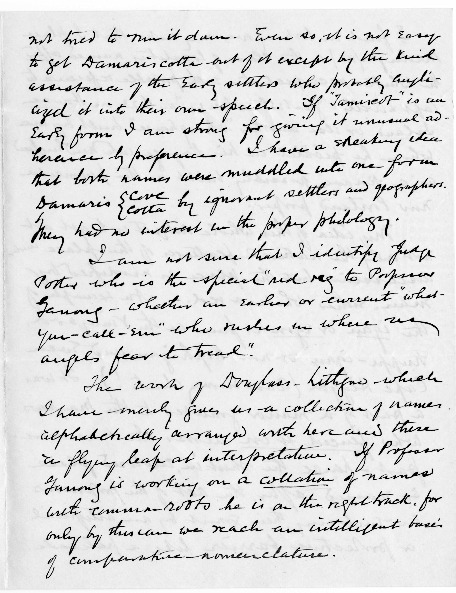 not tried to run it down. Even so, it is not easy
to get Damariscotta out of it except by the kind
assistance of the Early settlers who probably angli-
cized it into their own speech. If "Tamiscot" is an
Early form I am strong for giving it unusual ad-
herence by preference. I have a sneaking idea
that both names were muddled into one form
Damaris { cove
cotta by ignorant settlers and geographers.
They had no interest in the proper philology.
I am not sure that I identify Judge
Porter who is the special "red rag" to Professor
Ganong - whether an Earlier or current "what-
you-call-'Em" who rushes in where
angels fear to tread".
The work of Douglass-Lithgow - which
I have - merely gives us a collection of names
alphabetically arranged with here and there
a flying leap at interpretation. If Professor
Ganong is working on a collation of names
with common roots he is on the right track, for
only by this can we reach an intelligent basis
of comparative-nomenclature.